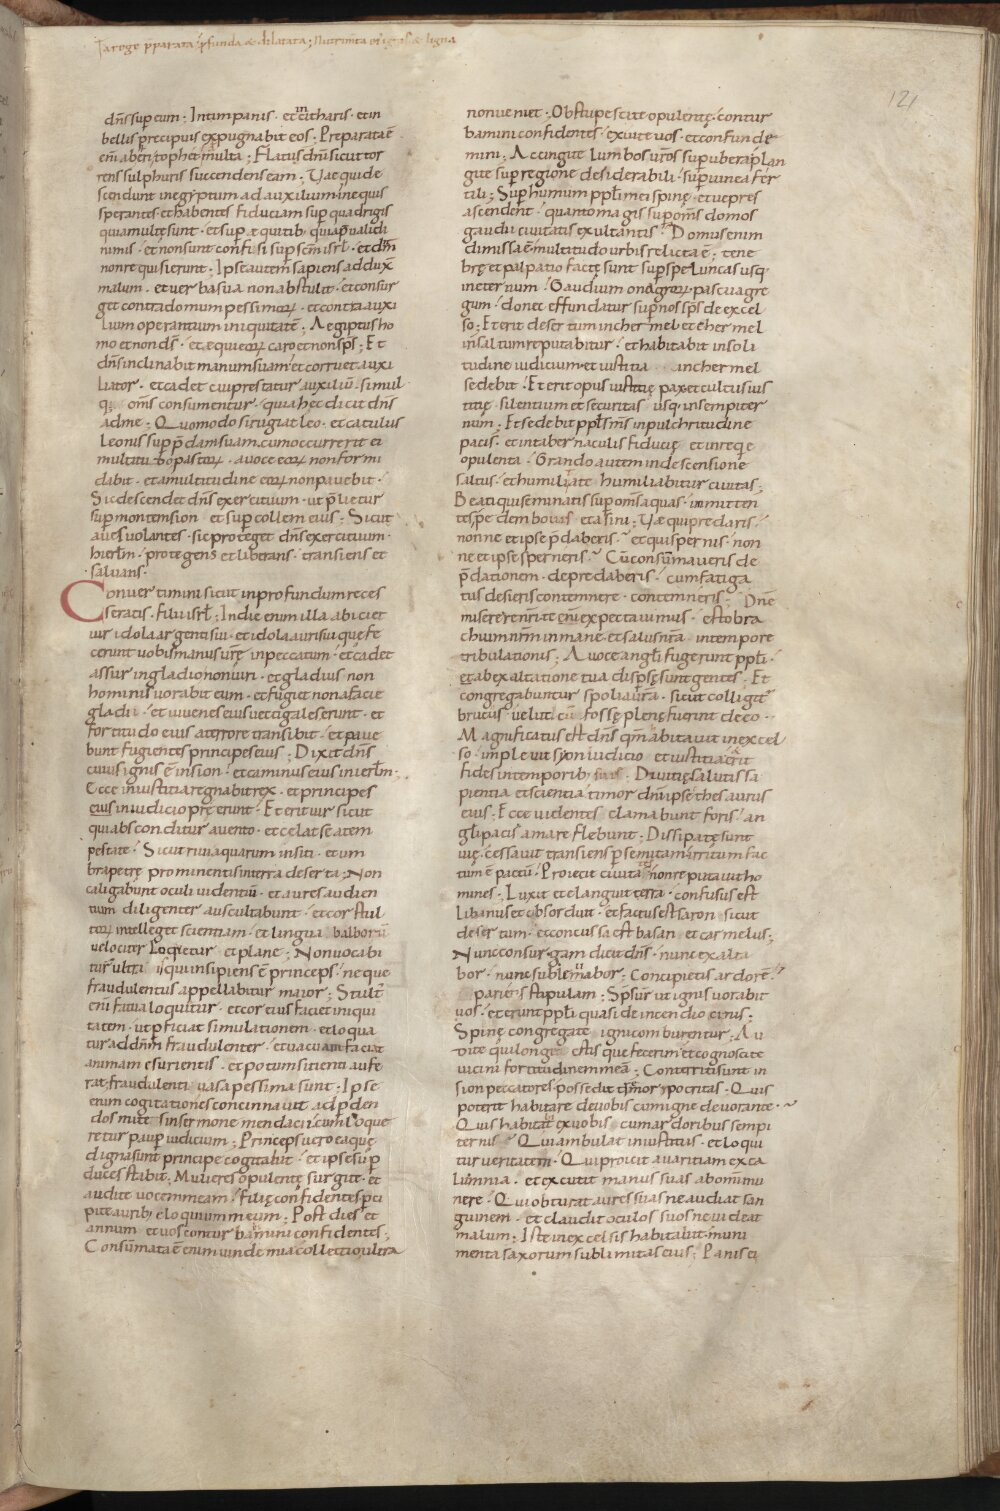 a rege p̄parata p̄funda & dilatata; Nutrim̄ta ei ignis & ligna
121
dn̄s sup eum ; In timpanis · et in citharis · et in
bellis precipuis expugnabit eos · Preparata ē
eni ab heri topheth multa ; Flatus dn̄i sicut tor
rens sulphuris succendens eam ; Uae qui de
scendunt in egyptum ad auxilium in equis
sperantes · et habentes fiduciam sup quadrigis
quia multe sunt · et sup equitib; quia p̄ualidi
nimis · et non sunt confisi sup sc̄m isrl̄ · et dn̄m
non requisierunt ; Ipse autem sapiens adduxit
malum · et uerba sua non abstulit · et consur
get contra domum pessimoꝝ · et contra auxi
lium operantium iniquitatē ; Aegiptus ho
mo et non ds̄ · et equi eoꝝ caro et non sp̄s ; Et
dn̄s inclinabit manum suam et corruet auxi
liator · et cadet cui prestatur auxiliū · simul
q; om̄s consumentur · quia hec dicit dn̄s
ad me ; Quomodo si rugiat leo · et catulus
leonis sup p̄dam suam · cum occurrerit ei
multitudo pastoꝝ · a uoce eoꝝ non formi
dabit · et a multitudine eoꝝ non pauebit ·
Sic descendet dn̄s exercituum · ut p̄lietur
sup montem sion · et sup collem eius ; Sicut
aues uolantes · sic proteget dn̄s exercituum ·
hierl̄m · protegens et liberans · transiens et
saluans ·
Conuertimini sicut in profundum reces
seratis · filii isrl̄ ; In die enim illa abiciet
uir idola argenti sui · et idola auri sui que fe
cerunt uobis manus ur̄ę in peccatum · et cadet
assur in gladio non uiri · et gladius non
hominis uorabit eum · et fugiet non a facie
gladii · et iuuenes eius uectigales erunt · et
fortitudo eius a terrore transibit · et paue
bunt fugientes principes eius ; Dixit dn̄s
cuius ignis ē in sion · et caminus eius in ierl̄m ·
Ecce in iustitia regnabit rex · et principes
eius in iudicio preerunt · Et erit uir sicut
qui absconditur a uento · et celat se a tem
pestate · Sicut riui aquarum in siti · et um
bra petrę prominentis in terra deserta ; Non
caligabunt oculi uidentiū · et aures audien
tium diligenter auscultabunt · et cor stul
toꝝ intelleget scientiam · et lingua balborū
uelociter loquetur · et plane ; Non uocabi
tur ultra is qui insipiens ē princeps · neque
fraudulentus appellabitur maior ; Stult
eni fatua loquitur · et cor eius faciet iniqui
tatem · ut p̄ficiat simulationem · et loqua
tur ad dn̄m fraudulenter · et uacuam faciat
animam esurientis · et potum sitienti aufe
rat · fraudulenti uasa pessima sunt ; Ipse
enim cogitationes concinnauit ad p̄den
dos mites in sermone mendacii · cum loque
retur paup iudicium ; Princeps uero ea quę
digna sunt principe cogitabit · et ipse sup
duces stabit ; Mulieres opulente surgite · et
audite uocem meam · filię confidentes p̄ci
pite aurib; eloquium meum ; Post dies et
annum · et uos conturbamini confidentes ;
Consūmata ē enim uindemia · collectio ultra
non ueniet ; Obstupescite opulentę · contur
bamini confidentes · exuite uos · et confunde
mini ; Accingite lumbos ur̄os sup ubera plan
gite sup regione desiderabili · sup uinea fer
tili ; Sup humum ppl̄i mei spinę · et uepres
ascendent · quanto magis sup om̄s domos
gaudii ciuitatis exultantis · Domus enim
dimissa ē · multitudo urbis relicta ē ; tene
brę et palpatio factę sunt sup speluncas usq;
in eternum · Gaudium onagroꝝ · pascua gre
gum · donec effundatur sup nos sp̄s de excel
so ; Et erit desertum in chermel · et chermel
in saltum reputabitur · et habitabit in soli
tudine iudicium · et iustitia in chermel
sedebit · Et erit opus iustitię pax · et cultus ius
titię · silentium et securitas usq; in sempiter
num ; Et sedebit ppl̄s m̄s in pulchritudine
pacis · et in tabernaculis fiducię · et in requie
opulenta · Grando autem in descensione
saltus · et humilitate humiliabitur ciuitas ;
Beati qui seminatis sup om̄s aquas · inmitten
tes pedem bouis et asini ; Uae qui predaris ·
nonne et ipse p̄daberis · et qui spernis · non
ne et ipse sperneris · Cū consūmaueris de
p̄dationem · depredaberis · cum fatiga
tus desieris contemnere · contemneris · Dn̄e
miserere nr̄i · te eni expectauimus · esto bra
chium nr̄m in mane · et salus nr̄a in tempore
tribulationis ; A uoce angli fugerunt ppl̄i ·
et ab exaltatione tua dispsę sunt gentes · Et
congregabuntur spolia ur̄a · sicut colligit
brucus · uelut cū fossę plenę fuerint de eo ·
Magnificatus est dn̄s qm̄ habitauit in excel
so · impleuit syon iudicio et iustitia · et erit
fides in temporib; tuis · Diuitię salutis sa
pientia et scientia · timor dn̄i ipse thesaurus
eius · Ecce uidentes clamabunt foris · an
gli pacis amare flebunt · Dissipatę sunt
uię · cessauit transiens p semitam · irritum fac
tum ē pactū · Proiecit ciuitates · non reputauit ho
mines · Luxit et elanguit terra · confusus est
libanus et obsorduit · et factus est saron sicut
desertum · et concussa est basan et carmelus ;
Nunc consurgam dicit dn̄s · nunc exalta
bor · nunc subleuabor ; Concipietis ardorē ·
parietis stipulam ; Sp̄s ur̄ ut ignis uorabit
uos · et erunt ppl̄i quasi de incendio cinis ;
Spinę congregate igni comburentur ; Au
dite qui longe estis que fecerim · et cognoscite
uicini fortitudinem meā ; Conterriti sunt in
sion peccatores · possedit tremor ypocritas · Quis
poterit habitare de uobis cum igne deuorante ·
Quis habitabit ex uobis cum ardoribus sempi
ternis · Qui ambulat in iustitiis · et loqui
tur ueritatem · Qui proicit auaritiam ex ca
lumnia · et excutit manus suas ab omni mu
nere · Qui obturat aures suas ne audiat san
guinem · et claudit oculos suos ne uideat
malum ; Iste in excelsis habitabit · muni
menta saxorum sublimitas eius ; Panis ei